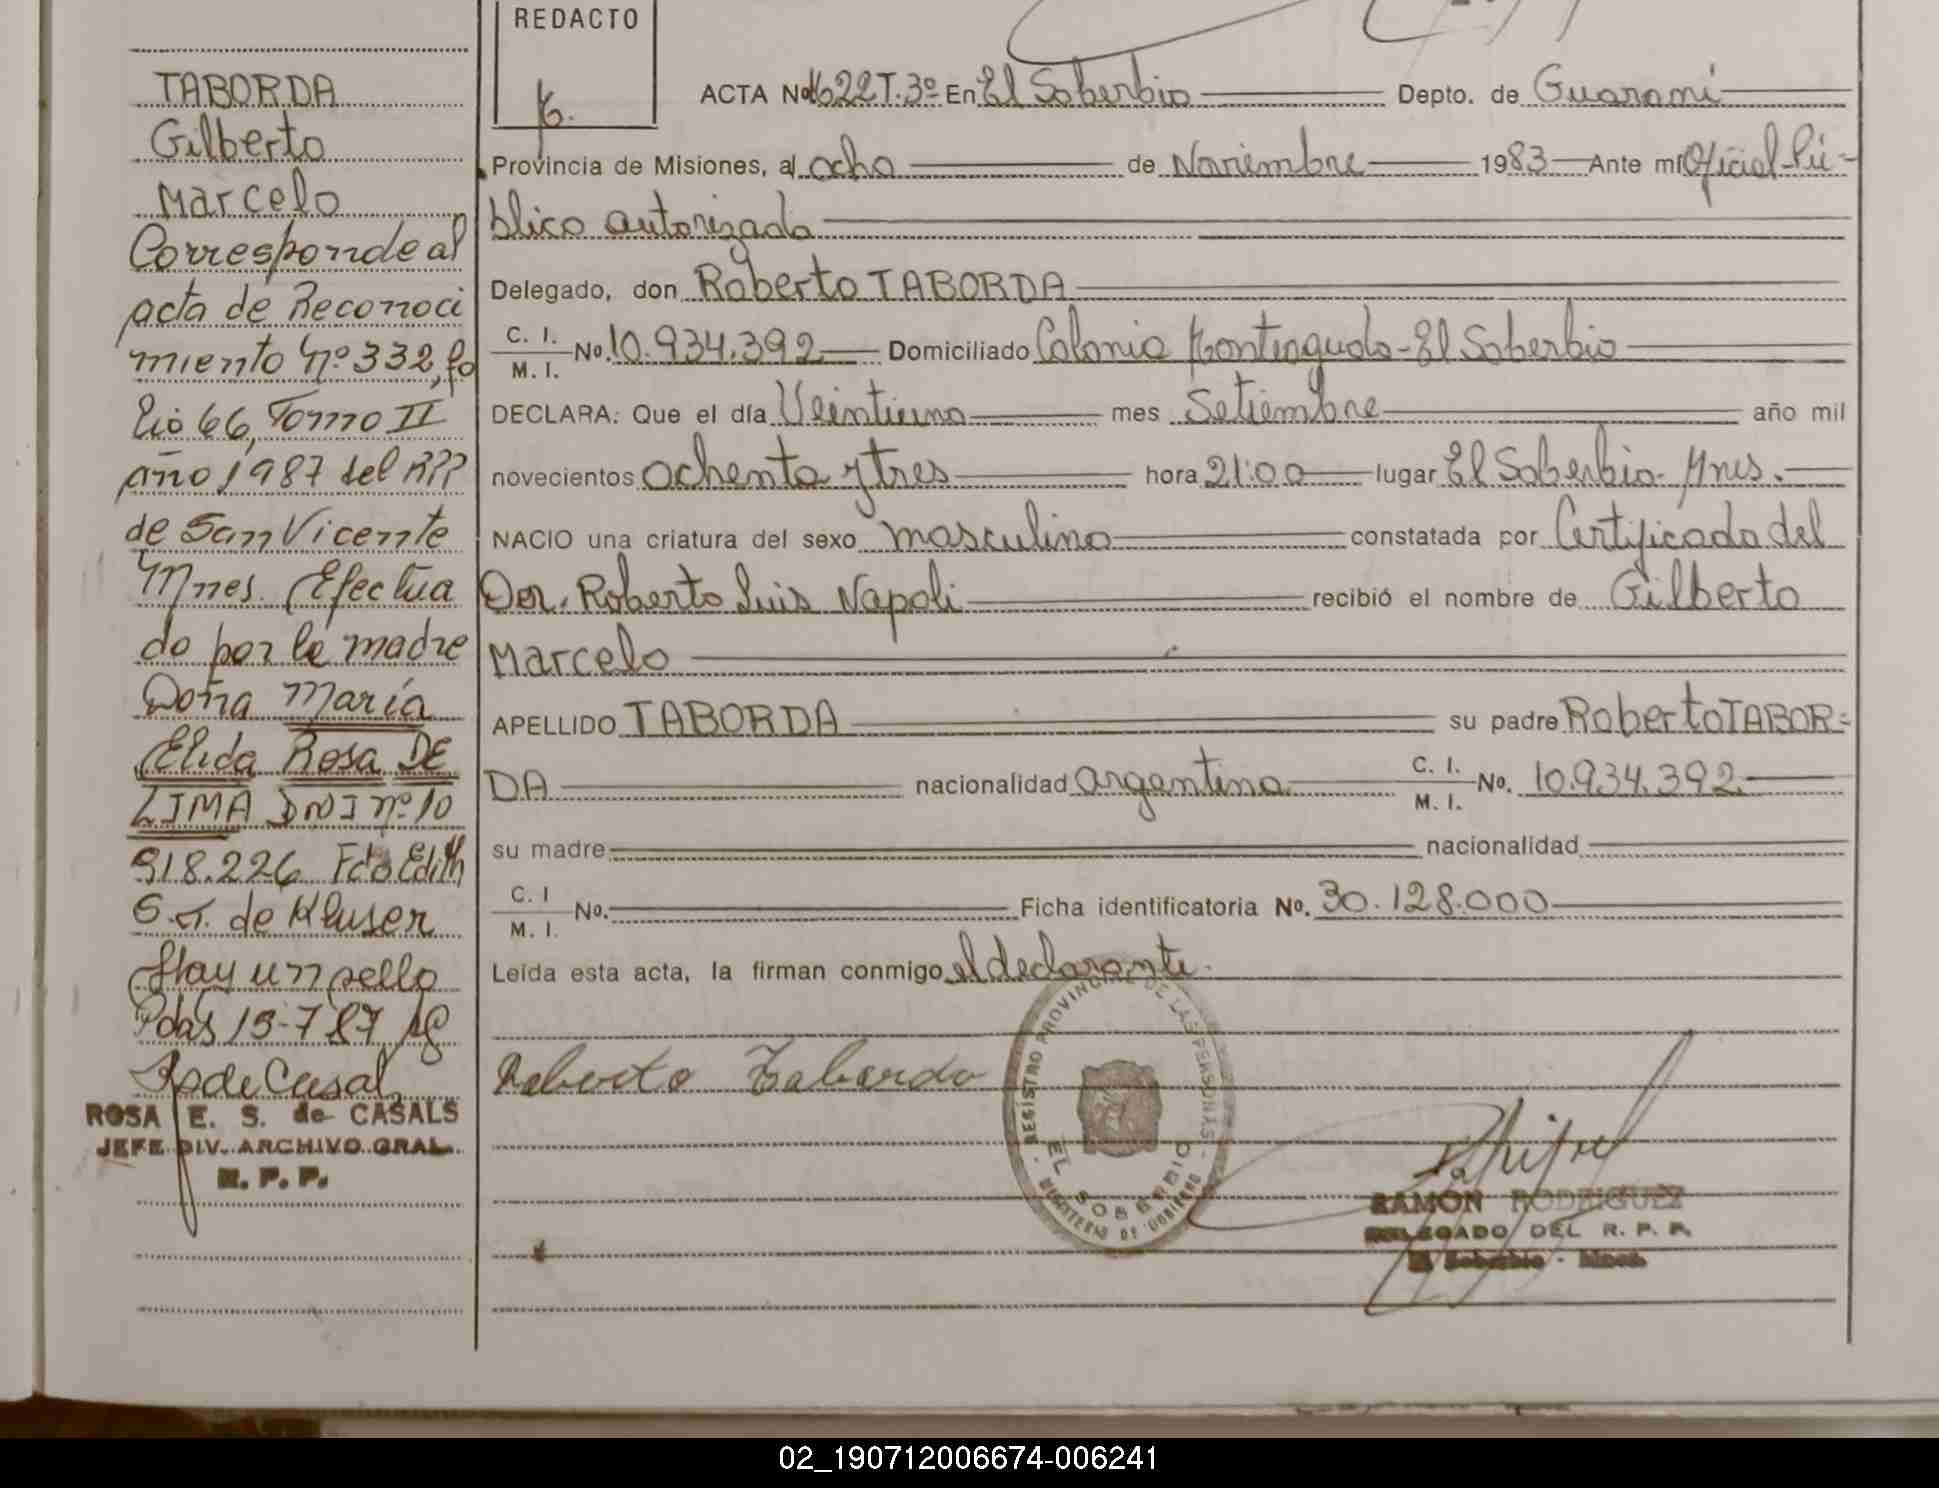 TABORDA
Gilberto
Marcelo
Corresponde al
acta de Reconoci
miento Nº 332, fo
lio 66, Tomo II
año 1987 del RPP
de San Vicente
Mnes. Efectua
do por la madre
Doña María
Elida Rosa DE
LIMA DNI nº 10
918.226 Fdo Edith
S.T. de Kluser
Hay un sello
Pdas 15-7 87
R de Casal
ROSA E. S. de CASALS
JEFE DIV. ARCHIVO GRAL.
R. P. P.
REDACTO
ACTA No 622 T.3º En El Soberbio Depto. de Guaraní
Provincia de Misiones, al ocho de Noviembre 1983 Ante mi Oficial Pú-
blico autorizado
Delegado, don Roberto TABORDA
C. I. M. I. No. 10.934.392 Domiciliado Colonia Monteagudo-El Soberbio
DECLARA: Que el día Veintiuno mes Setiembre año mil
novecientos ochenta y tres hora 21:00 lugar El Soberbio-Mnes.
NACIO una criatura del sexo masculino constatada por Certificado del
Dr. Roberto Luis Napoli recibió el nombre de Gilberto
Marcelo
APELLIDO TABORDA su padre Roberto TABOR-
DA nacionalidad argentina C. I. M. I. No. 10.934.392
su madre nacionalidad
C. I M. I. No. Ficha identificatoria No. 30.128.000
Leída esta acta, la firman conmigo el declarante.
Roberto Taborda
REGISTRO PROVINCIAL DE LAS PERSONAS
EL SOBERBIO
MINISTERIO DE GOBIERNO
RAMON RODRIGUEZ
DELEGADO DEL R. P. P.
El Soberbio - Mnes.
02_190712006674-006241